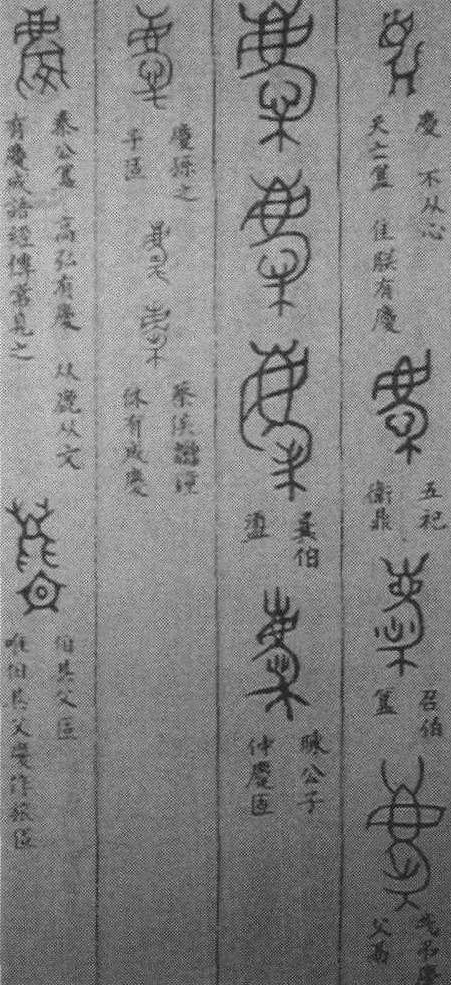 慶 不从心
天亡簋 隹朕有慶
五祀
衛鼎
召伯
簋
弔慶
父鬲
㠱伯
盨
公子
仲慶
慶孫之
子
蔡侯
休有成慶
秦公簋 高弘有慶 从鹿从文
有慶成語經傳常見之
伯其父
唯伯其父慶作旅